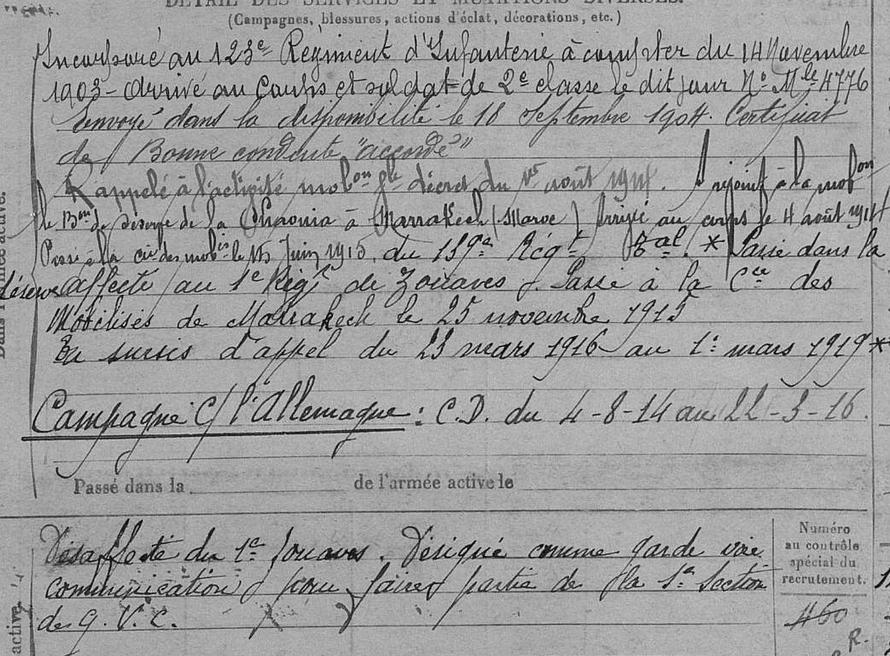 DÉTAIL DES SERVICES ET MUTATIONS DIVERSES.
(Campagnes, blessures, actions d'éclat, décorations, etc.)
Incorporé au 123e Régiment d'Infanterie à compter du 14 Novembre
1903 - arrivé au Corps et soldat de 2e classe le dit jour No Mle 4776
Envoyé dans la disponibilité le 18 Septembre 1904. Certificat
de Bonne conduite "accordé"
Rappelé à l'activité mobon gle décret du 1er août 1914. rejoint à la mobon
le Bon de réserve de la Chaouia à Marrakech (Maroc) Arrivé au corps le 4 août 1914
Passé à la cie des mobés le Juin 1915, du 139e Régt Tal. * Passé dans la
réserve
affecté au 1e Régt de Zouaves. Passé à la Cie des
Mobilisés de Marrakech le 25 novembre 1915
En sursis d'appel du 23 mars 1916 au 1e mars 1919 *
Campagne c/ l'Allemagne : C.D. du 4-8-14 au 22-3-16.
Passé dans la de l'armée active le
Désaffecté du 1e Zouaves. Désigné comme garde voie
communication pour faire partie de la 1e Section
de G. V. C.
Numéro
au contrôle
spécial du
recrutement.
460
R.
Dans l'armée active.
active.